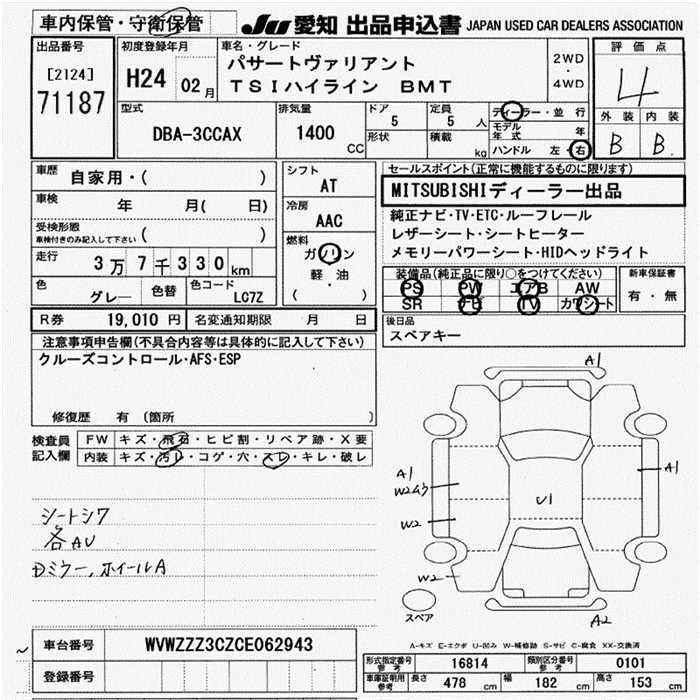 車内保管・守衛保管
JU 愛知 出品申込書 JAPAN USED CAR DEALERS ASSOCIATION
出品番号
[2124]
71187
初度登録年月
H24 02月
車名・グレード
パサートヴァリアント
TSIハイライン BMT
2WD
・
4WD
評価点
4
外装 内装
B B.
型式
DBA-3CCAX
排気量
1400 CC
ドア
5
形状
定員
5 人
積載
kg
ディーラー・並行
モデル年式 年
ハンドル 左・右
車歴 自家用・( )
車検 年 月( 日)
受検形態
車検付きのみ記入して下さい ( )
走行 3万7千330km
色 グレー 色替 色コード LC7Z
シフト
AT
冷房
AAC
燃料
ガソリン
軽・油
( )
セールスポイント(正常に機能するものに限ります)
MITSUBISHIディーラー出品
純正ナビ・TV・ETC・ルーフレール
レザーシート・シートヒーター
メモリーパワーシート・HIDヘッドライト
装備品(純正品に限り○をつけてください)
PS PW エアB AW
SR ナビ TV カワシート
新車保証書
有・無
R券 19,010 円 名変通知期限 月 日
後日品
スペアキー
注意事項申告欄(不具合内容等は具体的に記入して下さい)
クルーズコントロール・AFS・ESP
修復歴 有 (箇所 )
検査員記入欄
FW キズ・飛石・ヒビ割・リペア跡・X要
内装 キズ・汚レ・コゲ・穴・スレ・キレ・破レ
シートシワ
各AU
Dミラー,ホイールA
A1
A1
W2ムラ
W2
W2
U1
A1
スペア
A2
A-キズ E-エクボ U-凹み W-補修跡 S-サビ C-腐食 XX-交換済
車台番号 WVWZZZ3CZCE062943
登録番号
型式指定番号参考 16814 類別区分番号参考 0101
車庫証明用参考 長さ 478 cm 幅 182 cm 高さ 153 cm